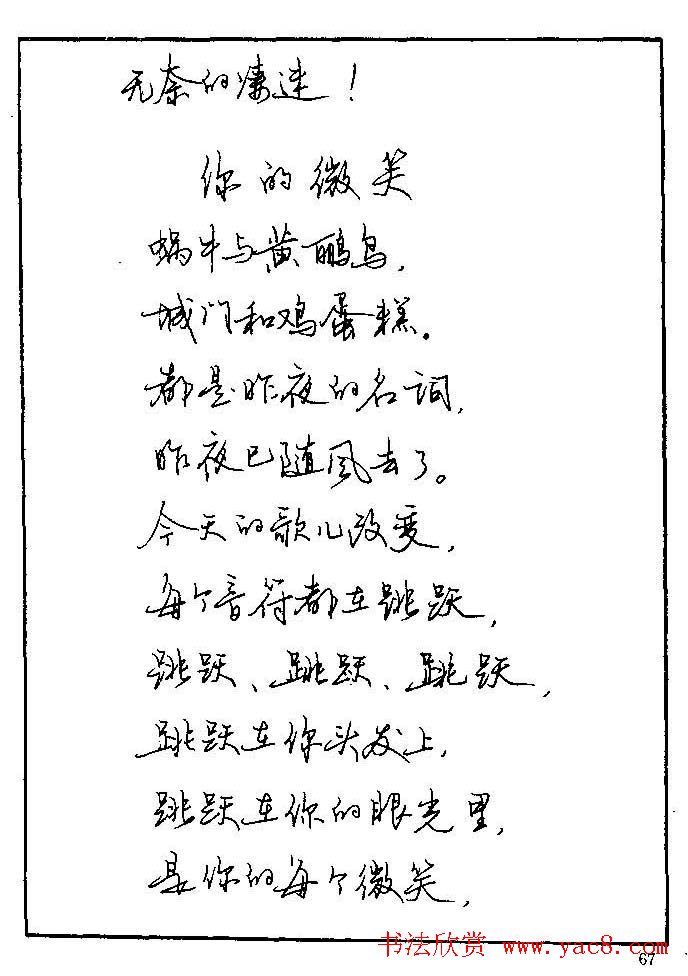 无奈的迷！
你的微笑
蜗牛与黄鹂鸟，
城门和鸡蛋糕。
都是昨夜的名词，
昨夜已随风去了。
今天的歌儿改变，
每个音符都在跳跃，
跳跃、跳跃、跳跃，
跳跃在你头发上，
跳跃在你的眼光里，
是你的每个微笑，
书法欣赏 www.yac8.com
67